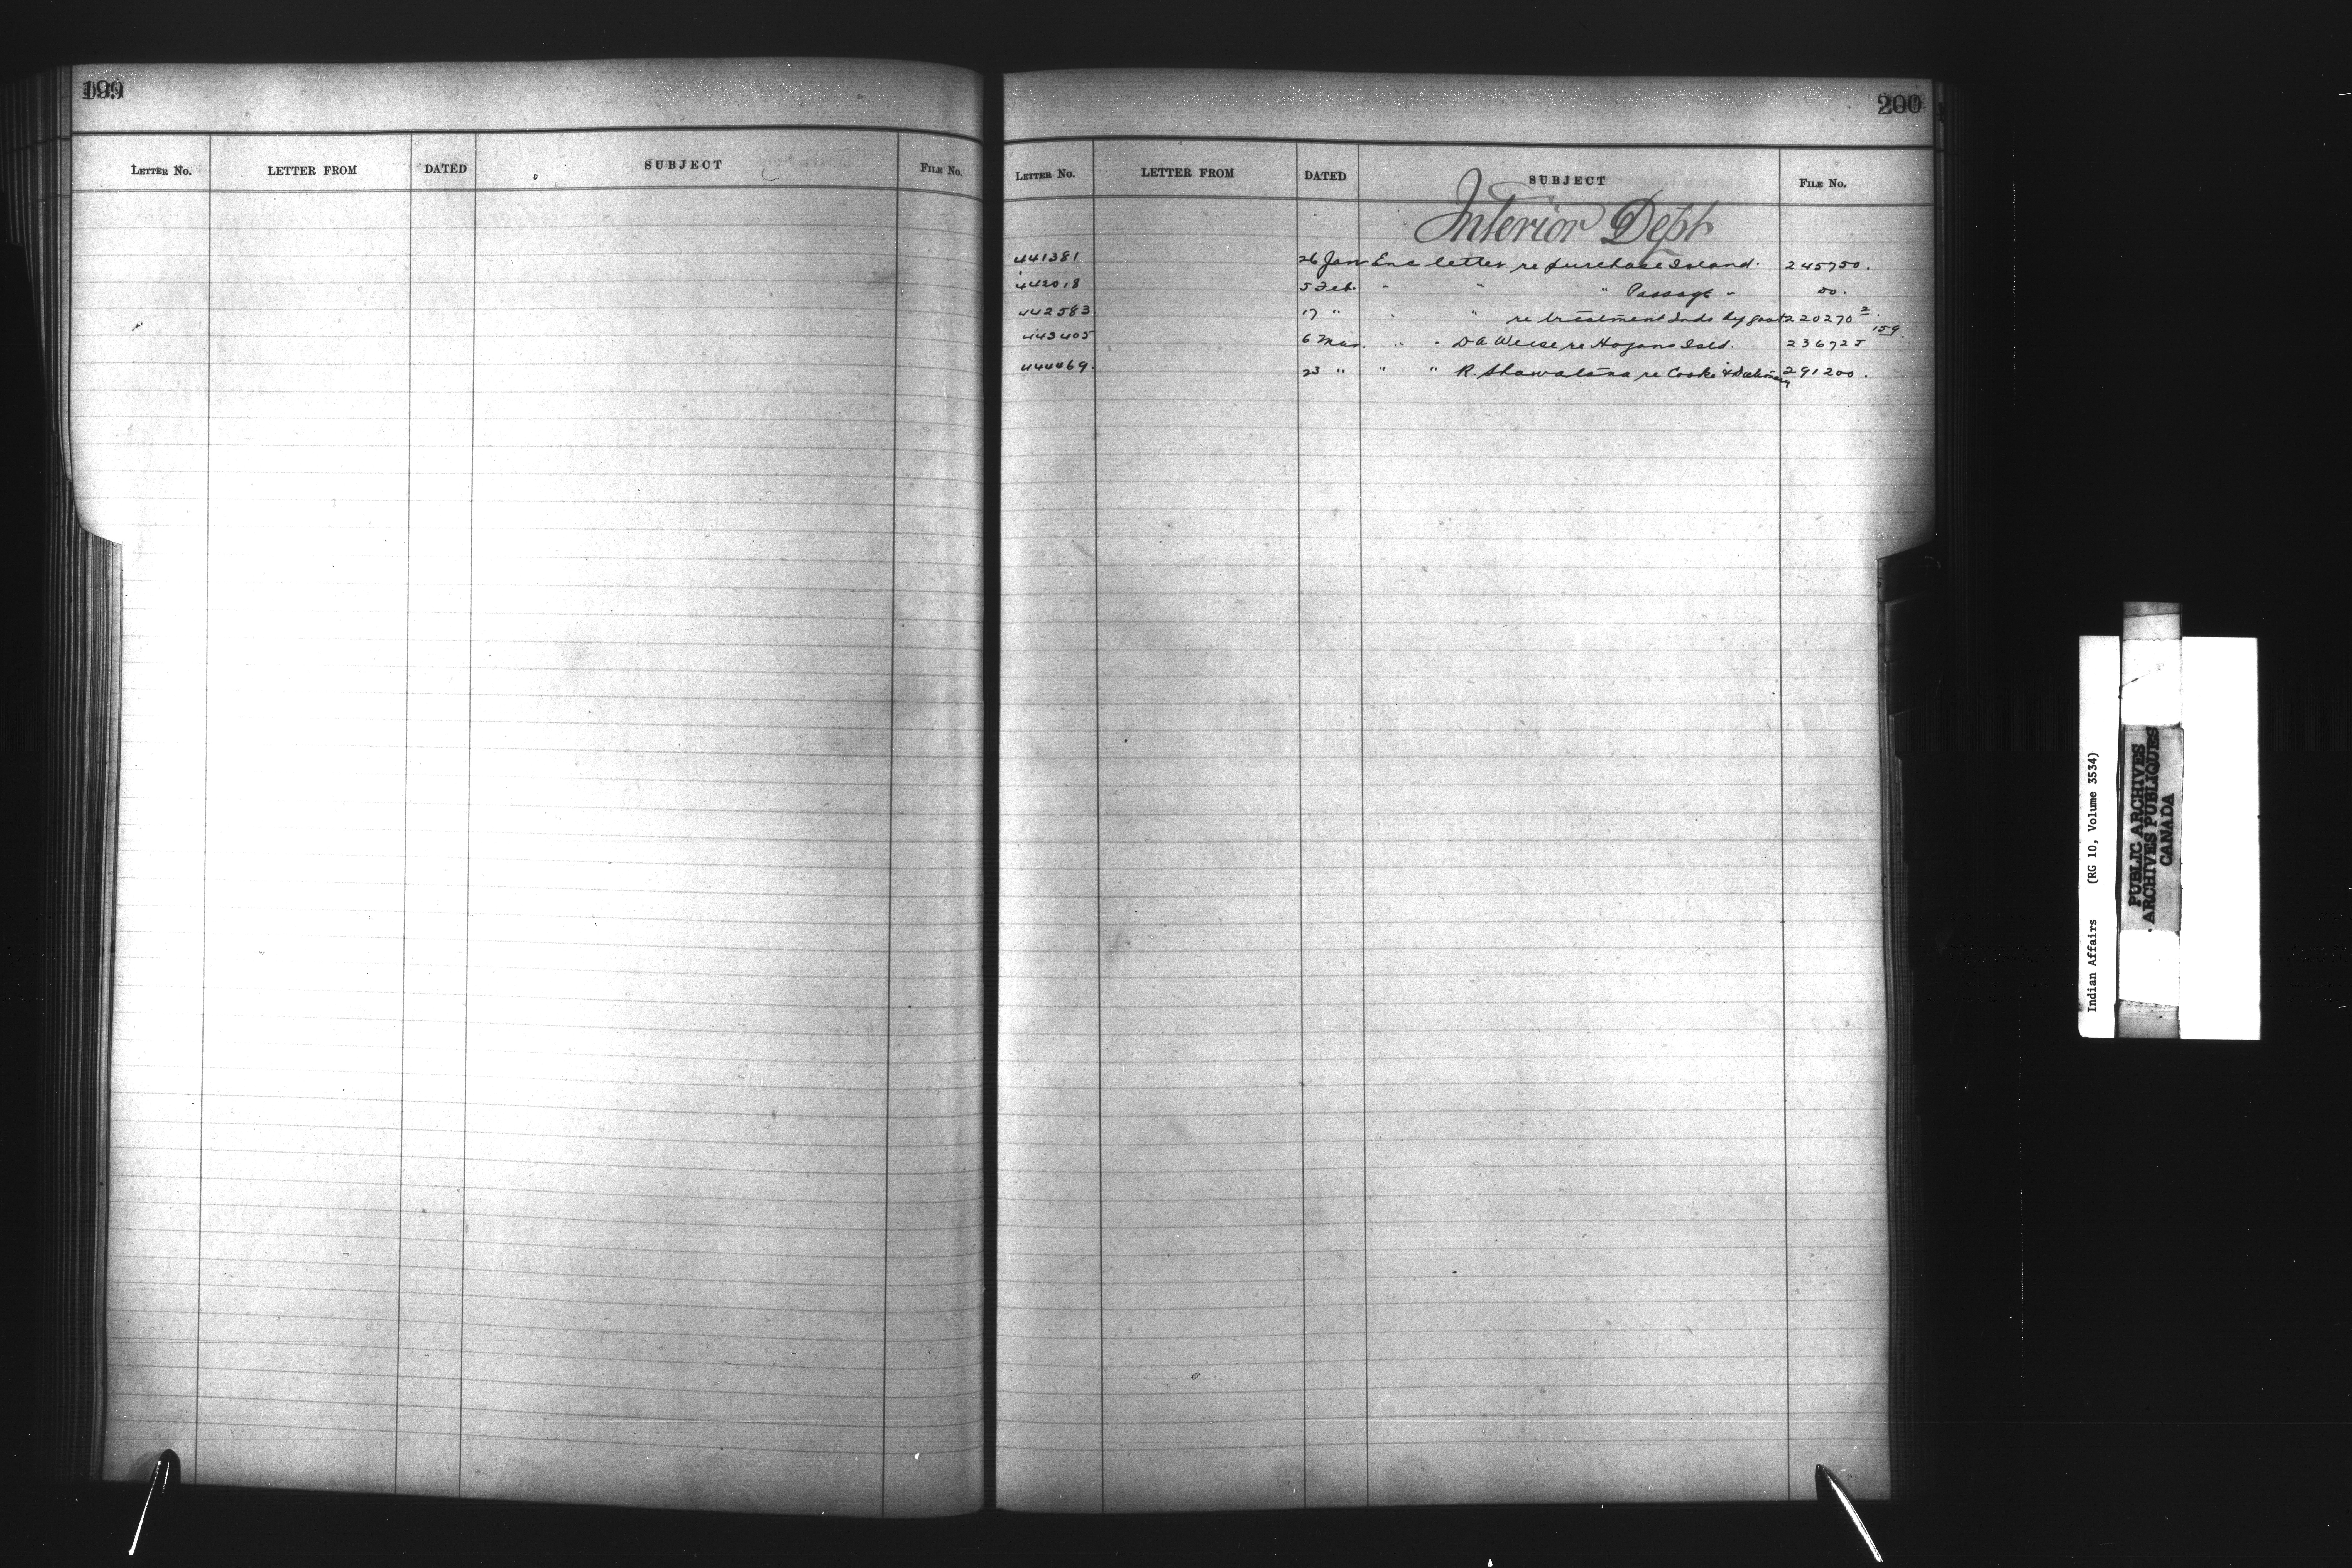 199
LETTER No. LETTER FROM DATED SUBJECT FILE No.
200
LETTER No. LETTER FROM DATED SUBJECT FILE No.
Interior Dept
441381 26 Jan Enc letter re purchase Island. 245750.
442018 5 Feb. " " " Passage " Do.
442583 17 " " " re treatment Inds by govt 220270 2
443405 6 Mar. " " D A Weese re Hogans Isld. 236725 159
444469. 23 " " " R. re Cooke & 291200.
Indian Affairs (RG 10, Volume 3534)
PUBLIC ARCHIVES
ARCHIVES PUBLIQUES
CANADA